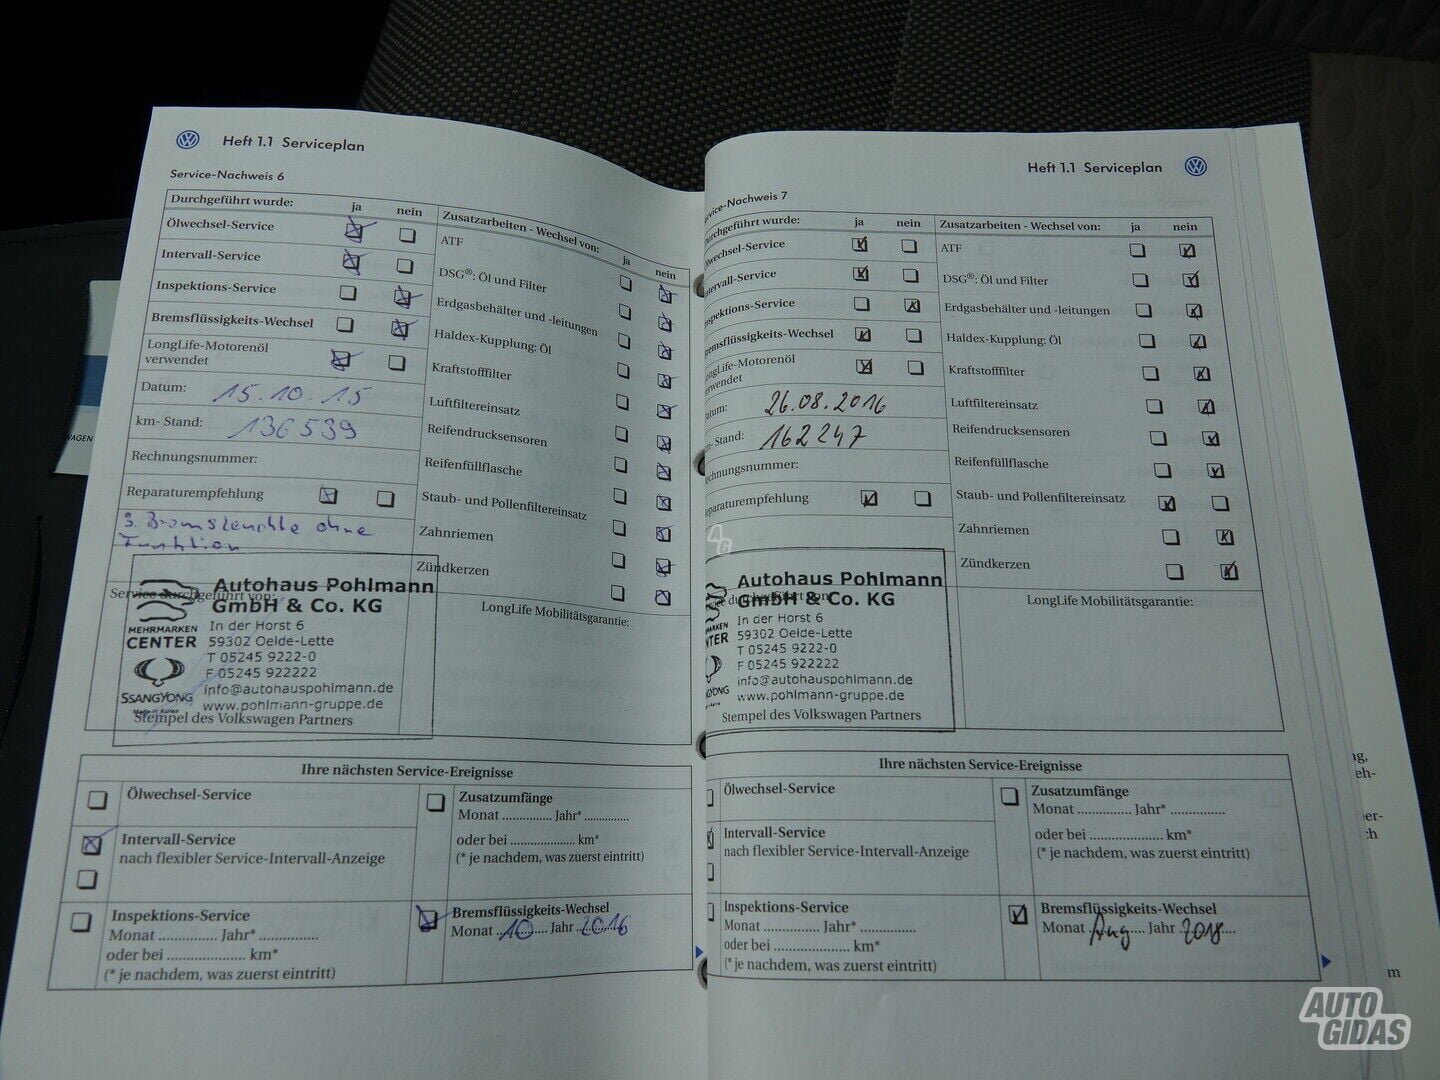 Heft 1.1 Serviceplan
Service-Nachweis 6
Durchgeführt wurde: ja nein
Ölwechsel-Service
Intervall-Service
Inspektions-Service
Bremsflüssigkeits-Wechsel
LongLife-Motorenöl
verwendet
Datum: 15.10.15
km- Stand: 136539
Rechnungsnummer:
Reparaturempfehlung
3. Bremsleuchte ohne
Funktion
Service durchgeführt von:
Zusatzarbeiten - Wechsel von: ja nein
ATF
DSG®: Öl und Filter
Erdgasbehälter und -leitungen
Haldex-Kupplung: Öl
Kraftstofffilter
Luftfiltereinsatz
Reifendrucksensoren
Reifenfüllflasche
Staub- und Pollenfiltereinsatz
Zahnriemen
Zündkerzen
LongLife Mobilitätsgarantie:
Autohaus Pohlmann
GmbH & Co. KG
MEHRMARKEN
CENTER
SSANGYONG
Made in Korea
In der Horst 6
59302 Oelde-Lette
T 05245 9222-0
F 05245 922222
info@autohauspohlmann.de
www.pohlmann-gruppe.de
Stempel des Volkswagen Partners
Ihre nächsten Service-Ereignisse
Ölwechsel-Service
Intervall-Service
nach flexibler Service-Intervall-Anzeige
Inspektions-Service
Monat ............... Jahr* ...............
oder bei .................... km*
(* je nachdem, was zuerst eintritt)
Zusatzumfänge
Monat ............. Jahr* ............
oder bei ................. km*
(* je nachdem, was zuerst eintritt)
Bremsflüssigkeits-Wechsel
Monat 10 Jahr 2016
Heft 1.1 Serviceplan
rvice-Nachweis 7
urchgeführt wurde: ja nein
lwechsel-Service
ntervall-Service
nspektions-Service
Bremsflüssigkeits-Wechsel
LongLife-Motorenöl
rwendet
atum: 26.08.2016
m- Stand: 162247
echnungsnummer:
eparaturempfehlung
Zusatzarbeiten - Wechsel von: ja nein
ATF
DSG®: Öl und Filter
Erdgasbehälter und -leitungen
Haldex-Kupplung: Öl
Kraftstofffilter
Luftfiltereinsatz
Reifendrucksensoren
Reifenfüllflasche
Staub- und Pollenfiltereinsatz
Zahnriemen
Zündkerzen
LongLife Mobilitätsgarantie:
Autohaus Pohlmann
GmbH & Co. KG
In der Horst 6
59302 Oelde-Lette
T 05245 9222-0
F 05245 922222
info@autohauspohlmann.de
www.pohlmann-gruppe.de
Stempel des Volkswagen Partners
Ihre nächsten Service-Ereignisse
Ölwechsel-Service
Intervall-Service
nach flexibler Service-Intervall-Anzeige
Inspektions-Service
Monat ............... Jahr* ...............
oder bei .................... km*
(* je nachdem, was zuerst eintritt)
Zusatzumfänge
Monat ............. Jahr* ..............
oder bei .................. km*
(* je nachdem, was zuerst eintritt)
Bremsflüssigkeits-Wechsel
Monat Aug Jahr 2018
WAGEN
AUTO
GIDAS